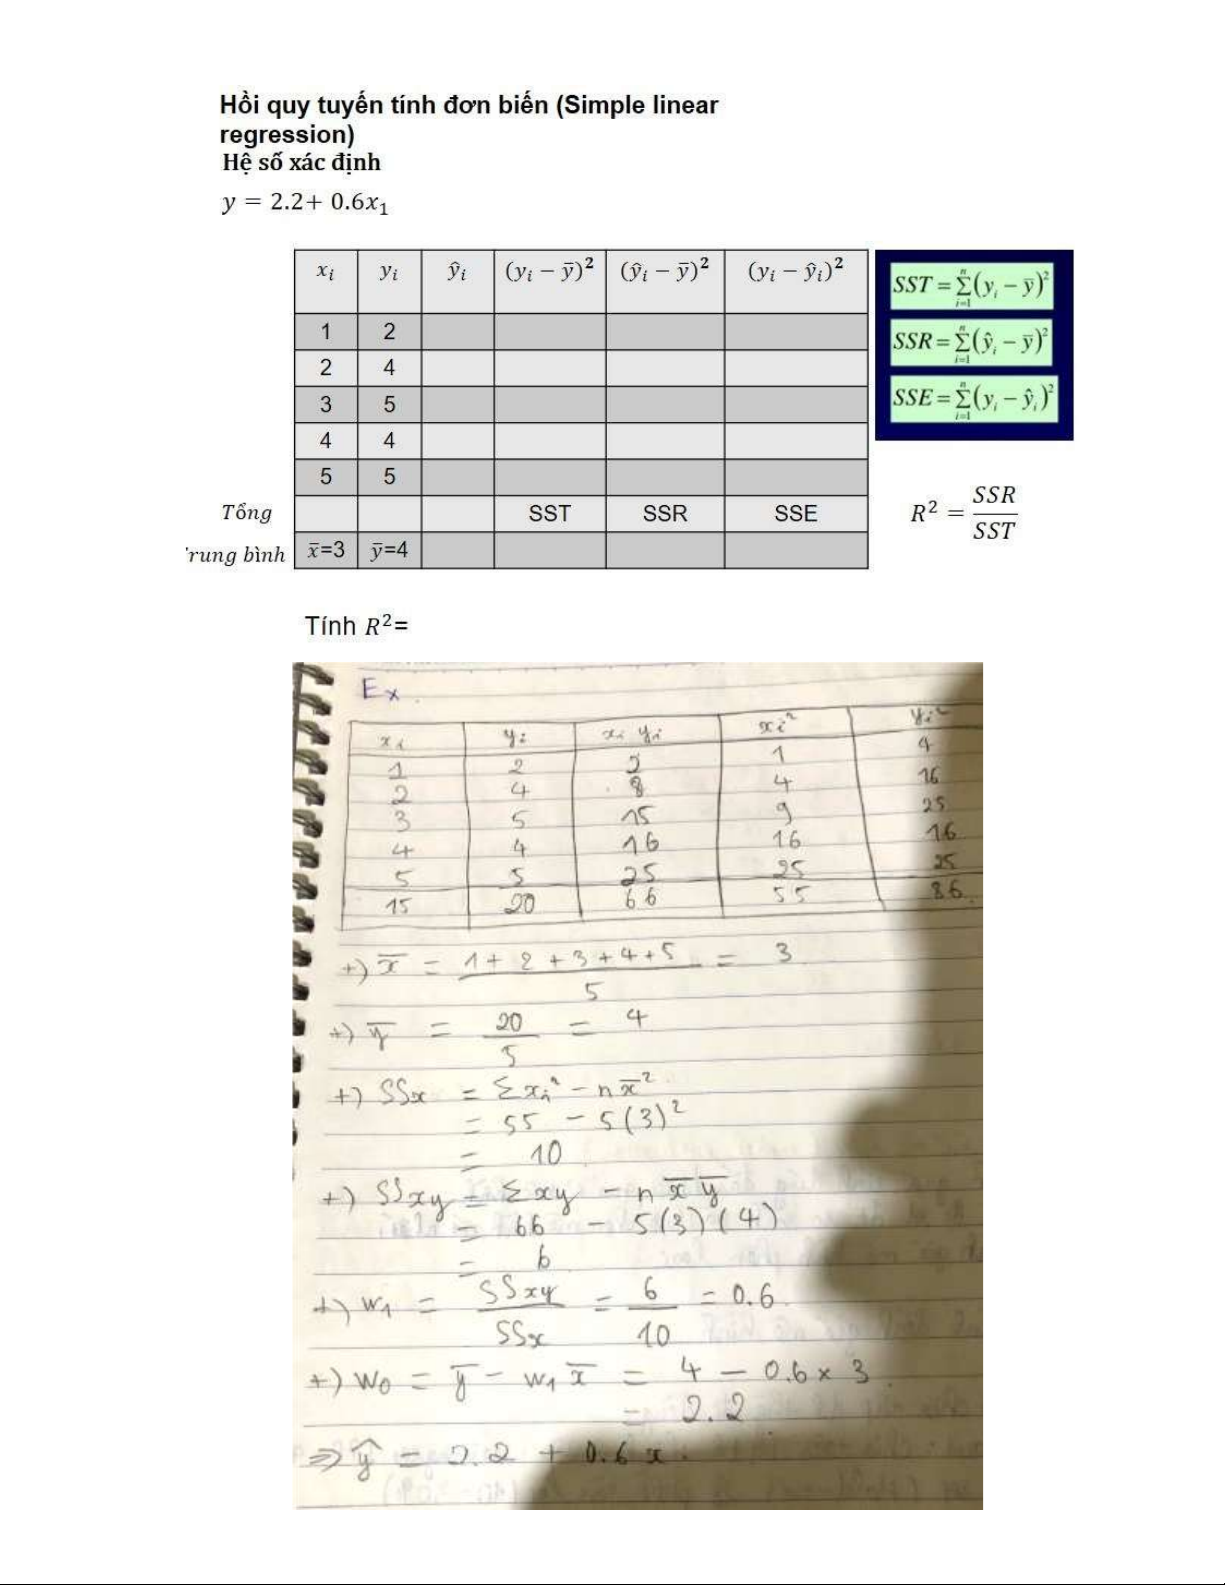 Hồi quy tuyến tính đơn biến (Simple linear
regression)
Hệ số xác định
y = 2.2+ 0.6x₁
xᵢ yᵢ ŷᵢ (yᵢ − ȳ)² (ŷᵢ − ȳ)² (yᵢ − ŷᵢ)²
1 2
2 4
3 5
4 4
5 5
Tổng SST SSR SSE
rung bình x̄=3 ȳ=4
SST = Σᵢ₌₁ⁿ(yᵢ − ȳ)²
SSR = Σᵢ₌₁ⁿ(ŷᵢ − ȳ)²
SSE = Σᵢ₌₁ⁿ(yᵢ − ŷᵢ)²
R² = SSR / SST
Tính R²=
Ex.
xᵢ yᵢ xᵢ yᵢ xᵢ² yᵢ²
1 2 2 1 4
2 4 8 4 16
3 5 15 9 25
4 4 16 16 16
5 5 25 25 25
15 20 66 55 86
+) x̄ = 1 + 2 + 3 + 4 + 5 / 5 = 3
+) ȳ = 20 / 5 = 4
+) SSx = Σxᵢ² − n x̄²
= 55 − 5(3)²
= 10
+) SSxy = Σxy − n x̄ ȳ
= 66 − 5(3)(4)
= 6
+) w₁ = SSxy / SSx = 6 / 10 = 0.6
+) w₀ = ȳ − w₁ x̄ = 4 − 0.6 × 3
= 2.2
⇒ ŷ = 2.2 + 0.6 x.